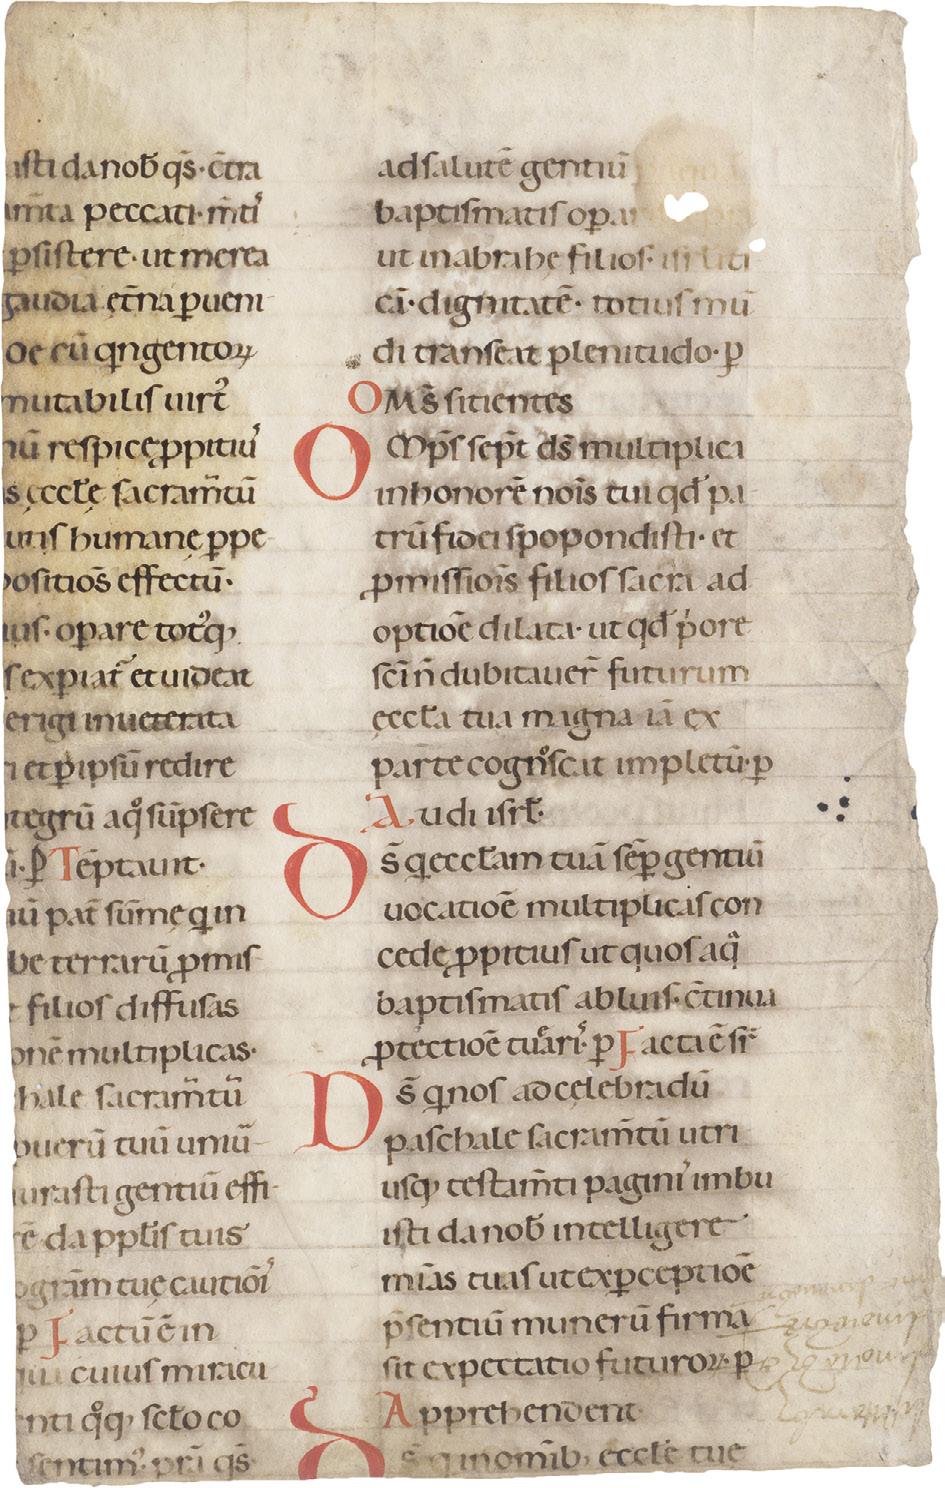 asti da nob̄ qs̄· c̄tra
am̄ta peccati· m̄ti᷒
p̱sistere· ut merea
gaudia ęt̄na p̱ueni
Oe cū qngentoꝝ
mutabilis uirt᷒
nū respicę ꝓpitiu᷒
s ęccłę sacram̄tū
utis humanę ꝑpe
positiōs effectū·
ius· oꝑare tot᷒qꝫ
s expiat᷒ et uideat
erigi inueterata
ri et ꝑ ipsū redire
ntegrū a qº sūpsere
ū· ꝑ Tēptauit·
iū pat̄ sūmę q in
be terrarū ꝓmis
filios diffusas
onē multiplicas·
hale sacram̄tū
puerū tuū uniū
iurasti gentiū effi
rē da ppłis tuis
ogrām tuę cautiōi᷒
ꝑ Factū ē in
cuius miracu
nti qºqꝫ scło co
sentim᷒· pr̄i qs̄·
ad salutē gentiū
baptismatis oꝑa
ut in abrahę filios·
cā· dignitatē· totius mū
di transeat plenitudo· ꝑ
OMS̄ sitientes
OMps̄ sep̄t ds̄ multiplica
in honorē nōis tui qđ pa
trū fidei spopondisti· et
ꝓmissiōis filios sacra ad
optiōe dilata· ut qđ p̄ore
sc̄i n̄ dubitauer̄ futurum
ęccła tua magna iā ex
parte cognºscat impletū· ꝑ
Audi isrł·
DS̄ q ęccłam tuā sēꝑ gentiū
uocatiōē multiplicas con
cede ꝓpitius ut quos aq̄
baptismatis abluis· c̄tinua
ꝓtectiōē tuāri᷒· ꝑ Facta ē sr̄
Ds̄ q nos ad cęlebradū
paschale sacram̄tū utri
usqꝫ testam̄ti pagini᷒ imbu
isti da nob̄ intelligere
mīas tuas ut ex ꝑceptiōē
p̄sentiū munerū firma
sit expectatio futuroꝝ· ꝑ
Apprehendent·
DS̄ q in omīb; ęccłę tuę